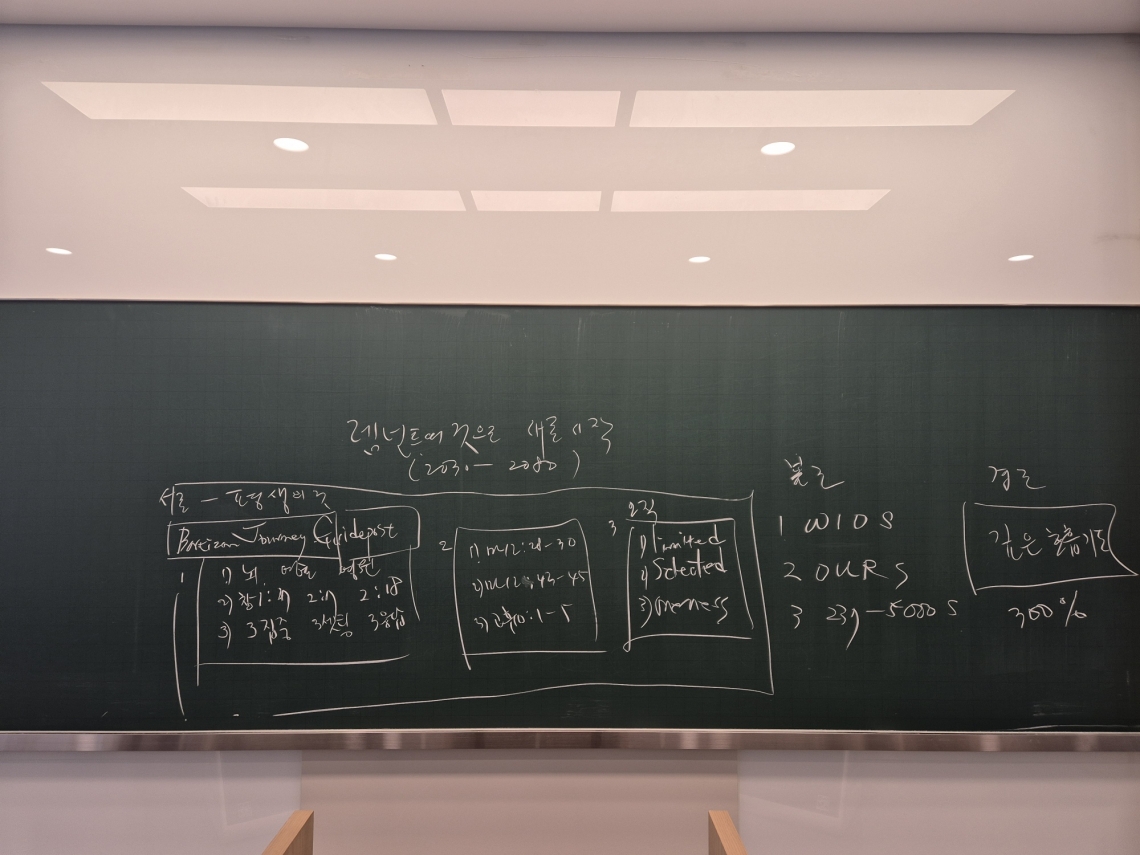 렘넌트에 것으로 새로 시작
(2030 - 2080)
서론 - 포럼 생의 것
Bartizan Journey Guidepost
1
1) 뇌 매일 영원
2) 창1:27 2:7 2:18
3) 3집중 3세팅 3응답
2
1) 마12:28-30
2) 마12:43-45
3) :1-5
3 오직
1) limited
2) Selected
3) Oneness
본론
1 WIOS
2 OURS
3 237-5000 S
결론
깊은 호흡기도
300%